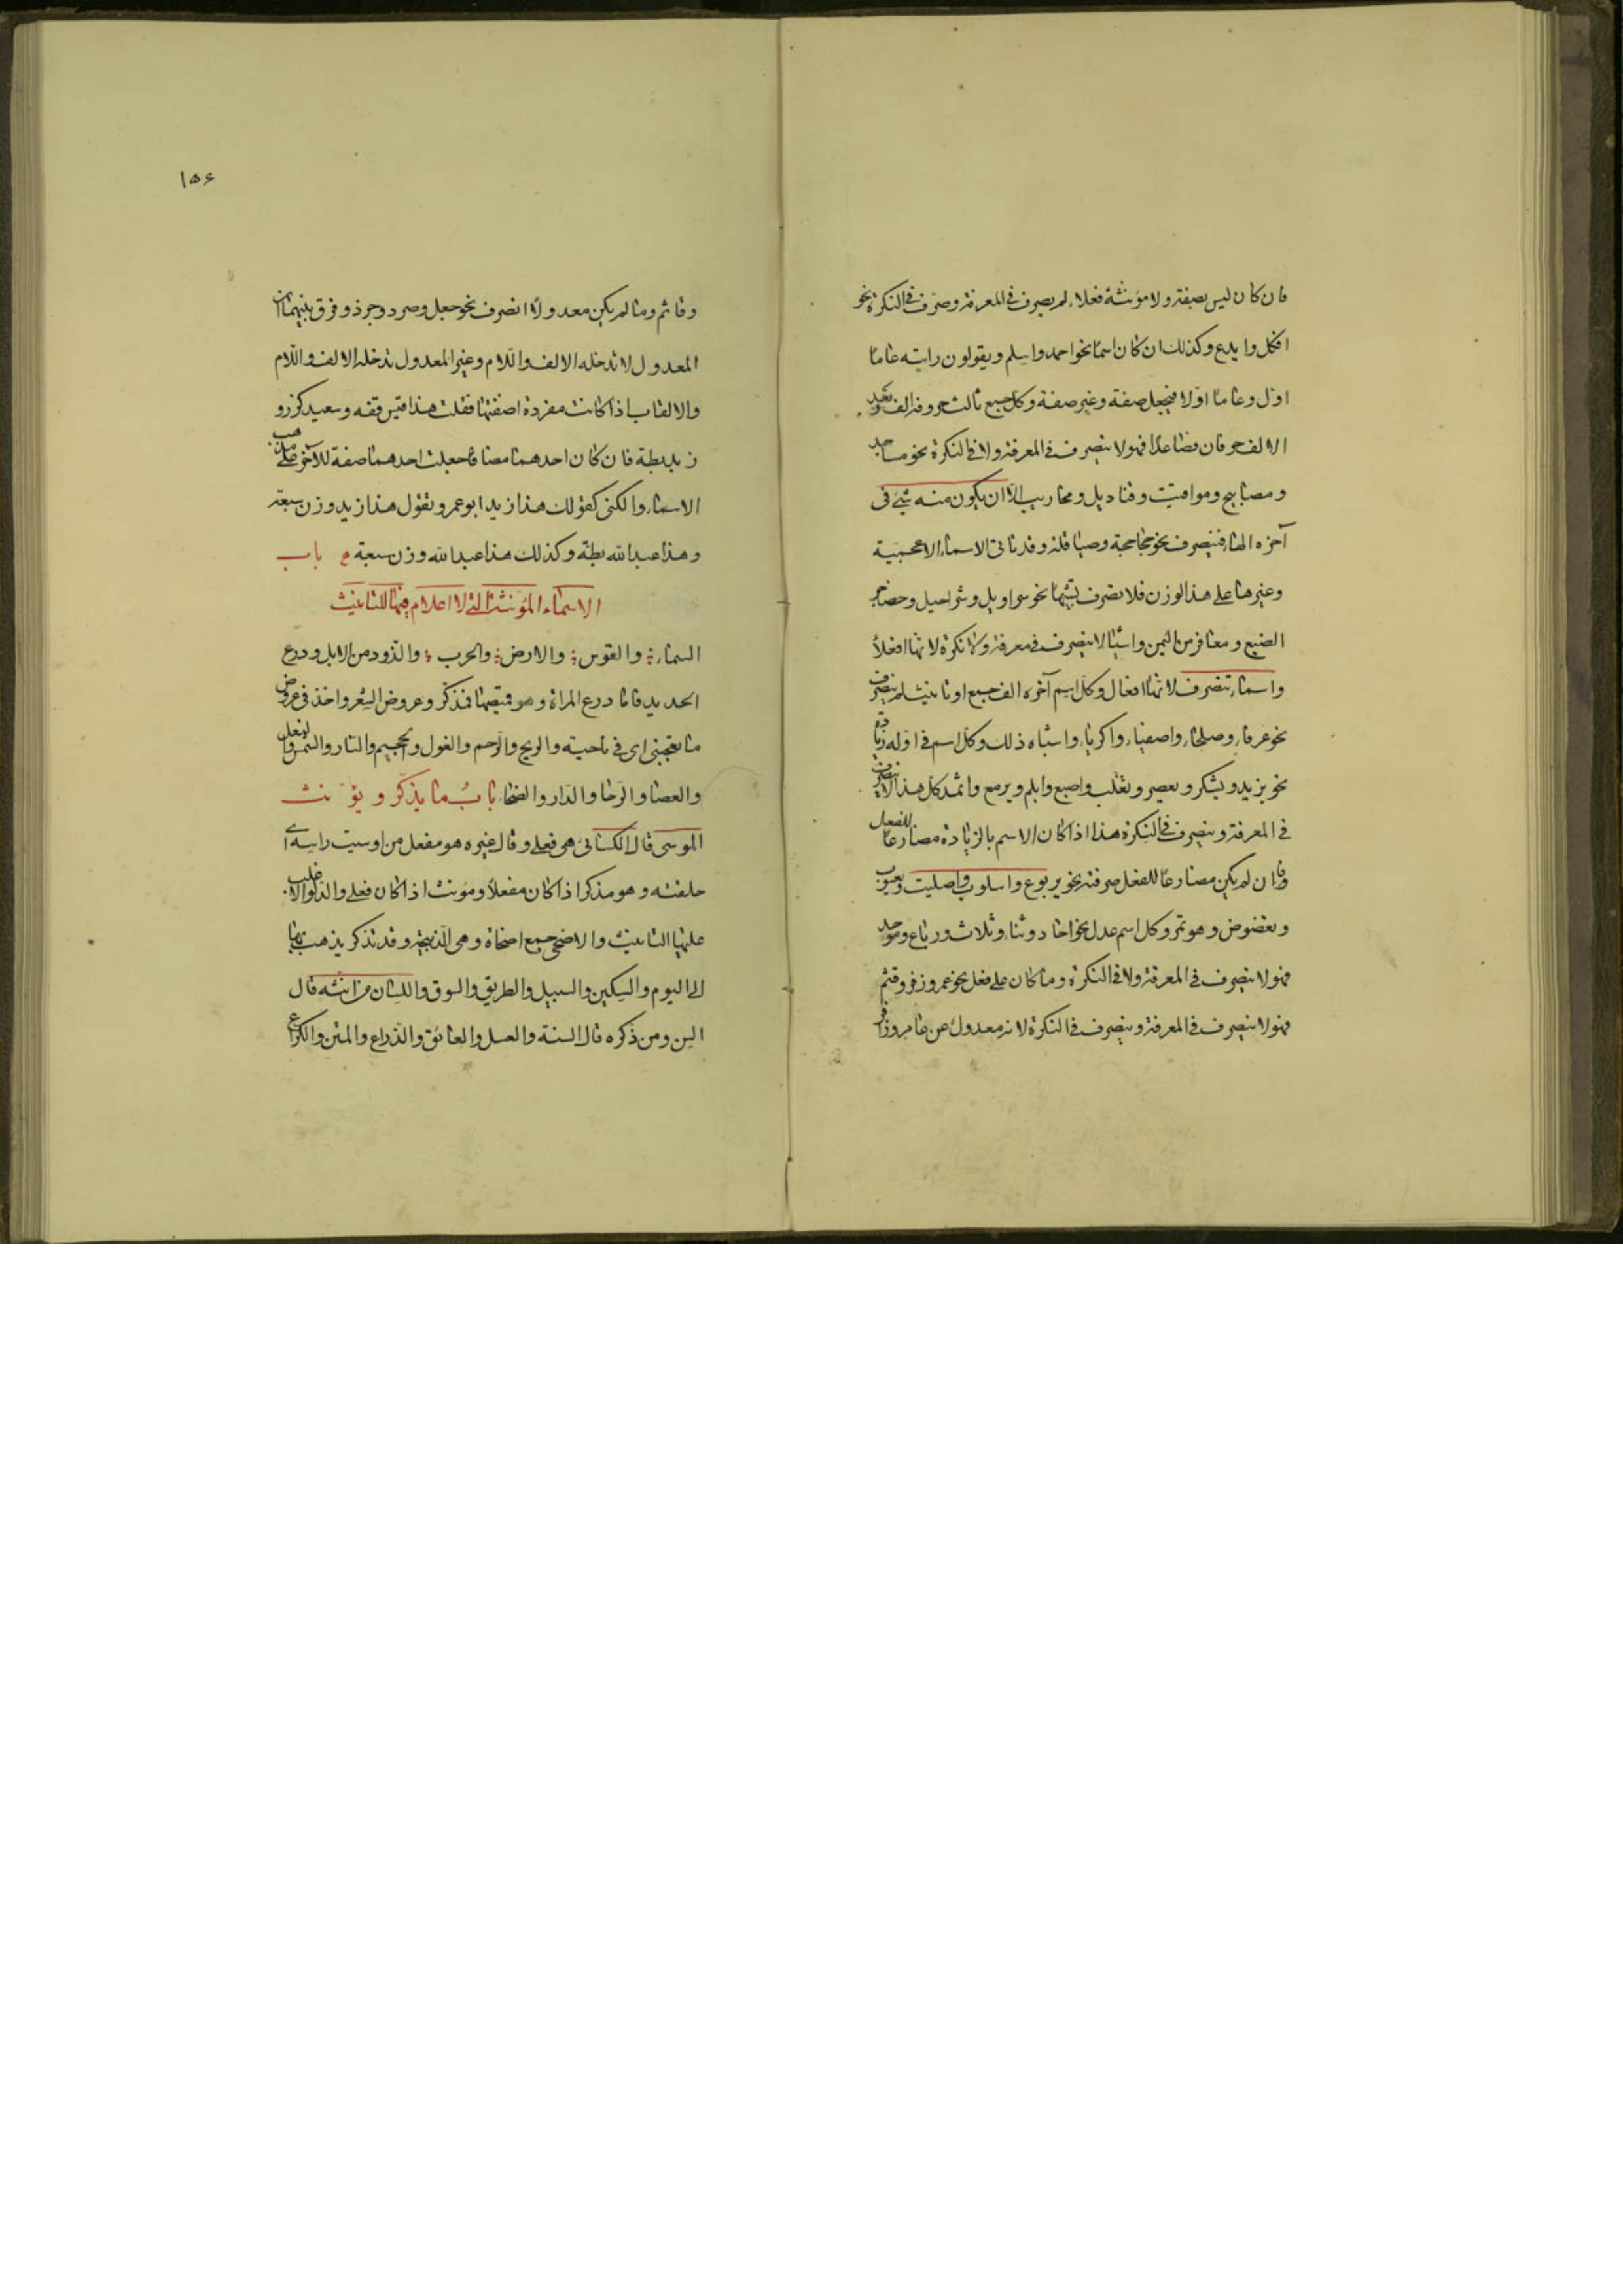 فان كان ليس بصفة ولا مؤنثة فعلاء لم يصرف فى المعرفة وصرف فى النكرة نحو
افكل وايدع وكذلك ان كان اسمًا نحو احمد واسلم ويقولون رايته عامًا
اوّل وعامًا اوّلا فيجعل صفة وغير صفة وكل جمع ثالث حروفه الف وبعد
الالف حرفان فصاعدًا فهو لا ينصرف فى المعرفة ولا فى النكرة نحو مساجد
ومصابيح ومواقيت وقناديل ومحاريب الّا ان يكون منه شئ فى
آخره الهاء فينصرف نحو جحاجحة وصياقلة وقد تاتى الاسماء الاعجمية
وغيرها على هذا الوزن فلا تصرف تشبيها نحو سراويل وشراحيل وحضاجر
الضبع ومعافر من اليمن واشياء لا ينصرف فى معرفة ولا نكرة لانها افعلاء
واسماء تنصرف لانها افعال وكل اسم آخره الف جمع او تانيث لم ينصرف
نحو عرفاء وصلحاء واصفياء واكرياء واشباه ذلك وكل اسم فى اوله زيادة
نحو يزيد ويشكر ويعصر وتغلب واصبع وابلم ويرمع واثمد كل هذا لا ينصرف
فى المعرفة وينصرف فى النكرة هذا اذا كان الاسم بالزيادة مضارعًا للفعل
وان لم يكن مضارعًا للفعل صرفته نحو يربوع واسلوب واصليت ويعسوب
وتعضوض وهو تمر وكل اسم عدل نحو احاد وثناء وثلاث ورباع وموحد
فهو لا ينصرف فى المعرفة ولا فى النكرة وما كان على فعل نحو عمر وزفر وقثم
فهو لا ينصرف فى المعرفة وينصرف فى النكرة لانه معدول عن عامر وزافر
١٥٤
وقاثم وما لم يكن معدولًا انصرف نحو جعل وصرد وجرذ وفرق بينهما ان
المعدول لا تدخله الالف واللام وغير المعدول تدخله الالف واللام
والالقاب اذا كانت مفردة اضفتها فقلت هذا قيس قفه وسعيد كرز و
زيد بطة فان كان احدهما مضافًا جعلت احدهما صفة للآخر على مذهب
الاسماء والكنى كقولك هذا زيد ابو عمرو وتقول هذا زيد وزن سبعة
وهذا عبد الله بطة وكذلك هذا عبد الله وزن سبعة م باب
الاسماء المؤنثة التى لا اعلام فيها للتانيث
السماء والقوس والارض والحرب والذود من الابل ودرع
الحديد فاما درع المراة وهو قميصها فمذكر وعروض الشعر واخذ فى عروض
ما تعجبنى اى فى ناحية والريح والرحم والغول والجحيم والنار والشمس والنعل
والعصا والرحا والدار والضحا باب ما يذكر ويؤنث
الموسى قال الكسائى هى فعلى وقال غيره هو مفعل من اوسيت راسه اى
حلقته وهو مذكر اذا كان مفعلًا ومؤنث اذا كان فعلى والدلو الاغلب
عليها التانيث والاضحى جمع اضحاة وهى الذبيحة وقد تذكر يذهب بها
الى اليوم والسكين والسبيل والطريق والسوق واللسان من انثه قال
السن ومن ذكره قال السنة والعسل والعاتق والذراع والمتن والكراع